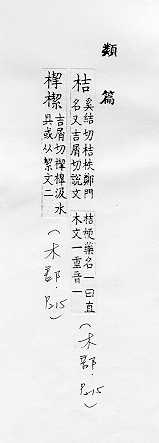 類篇
桔
奚結切桔柣鄭門
名又吉屑切說文
桔梗藥名一曰直
木文一重音一
(木部. P.215)
㮮
吉屑切橰汲水
具或从絜文二
(木部. P.215)